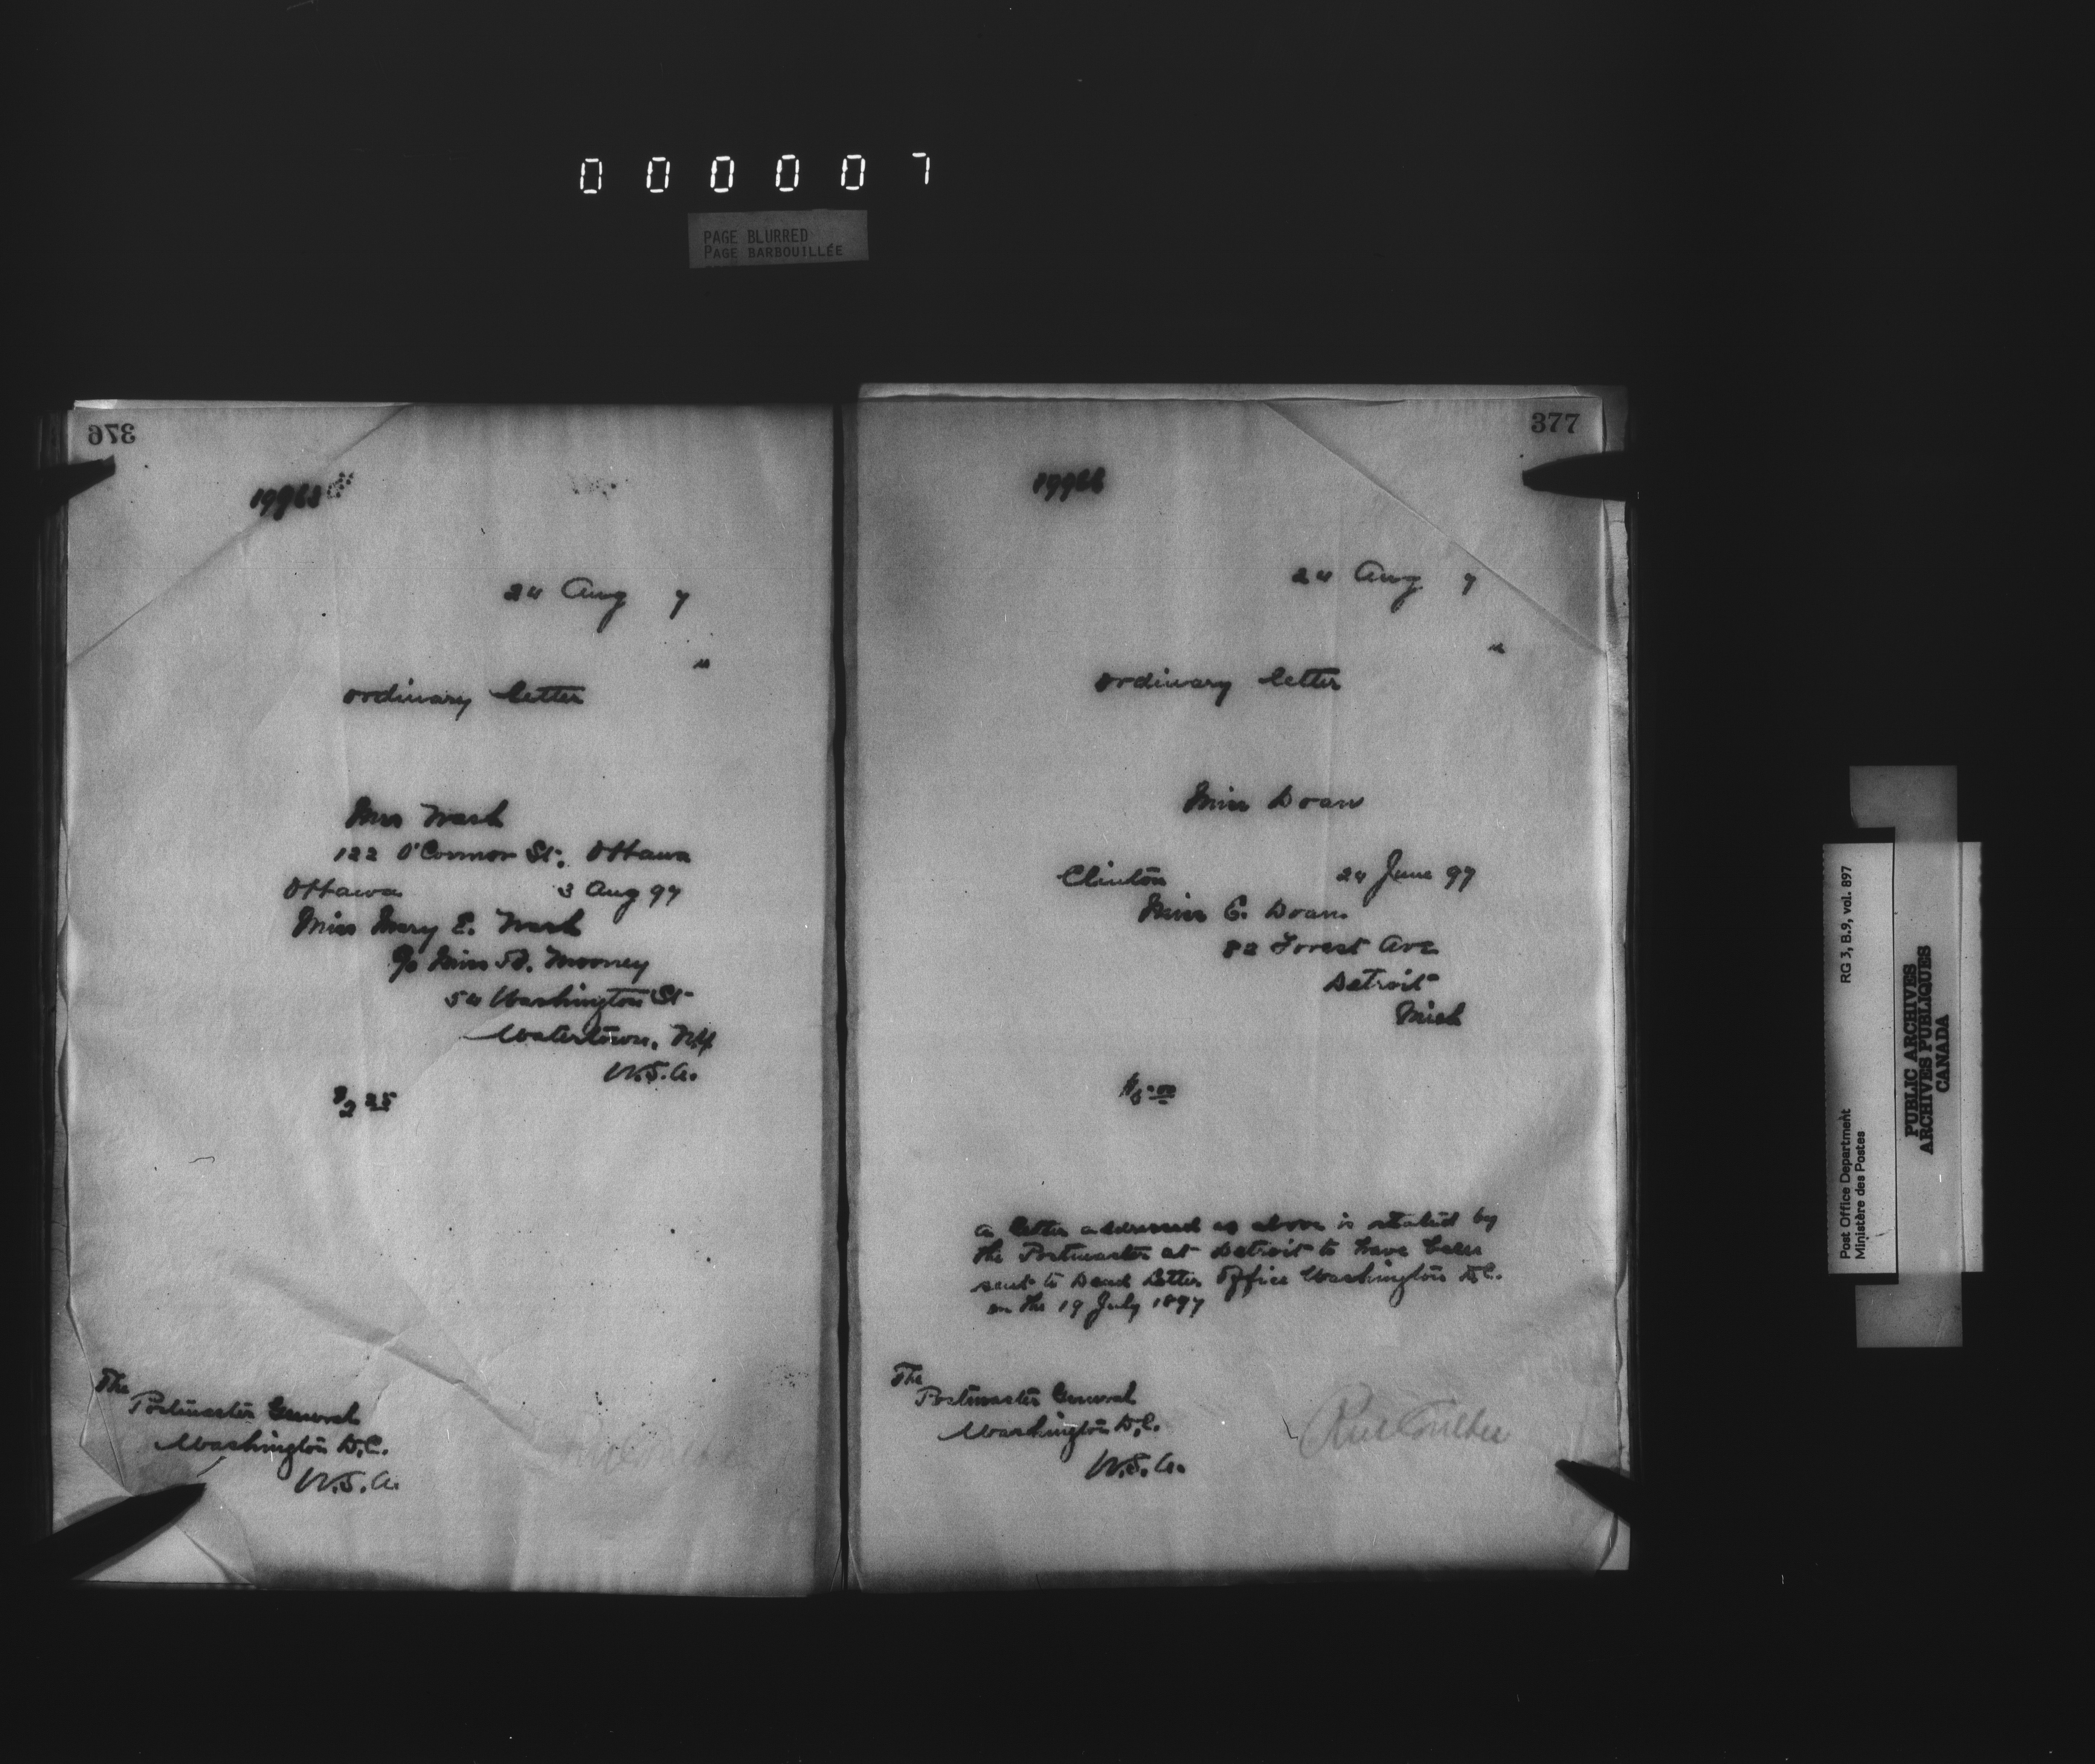 000007
PAGE BLURRED
PAGE BARBOUILLÉE
376
24 Aug 7
ordinary letter
122 O'Connor St., Ottawa
Ottawa 3 Aug 97
Miss Mary E.
c/o Miss Mooney
54 Washington St
Watertown, NY
U.S.A.
$2 25
The
Postmaster General
Washington D.C.
U.S.A.
377
24 Aug 7
ordinary letter
Miss Doan
Clinton 24 June 97
Miss C. Doan
82 Forest Ave
Detroit
Mich
$5.00
a letter addressed as above is stated by
the Postmaster at Detroit to have been
sent to Dead Letter Office Washington D.C.
on the 19 July 1897
The
Postmaster General
Washington D.C.
U.S.A.
Post Office Department RG 3, B.9, vol. 897
Ministère des Postes
PUBLIC ARCHIVES
ARCHIVES PUBLIQUES
CANADA